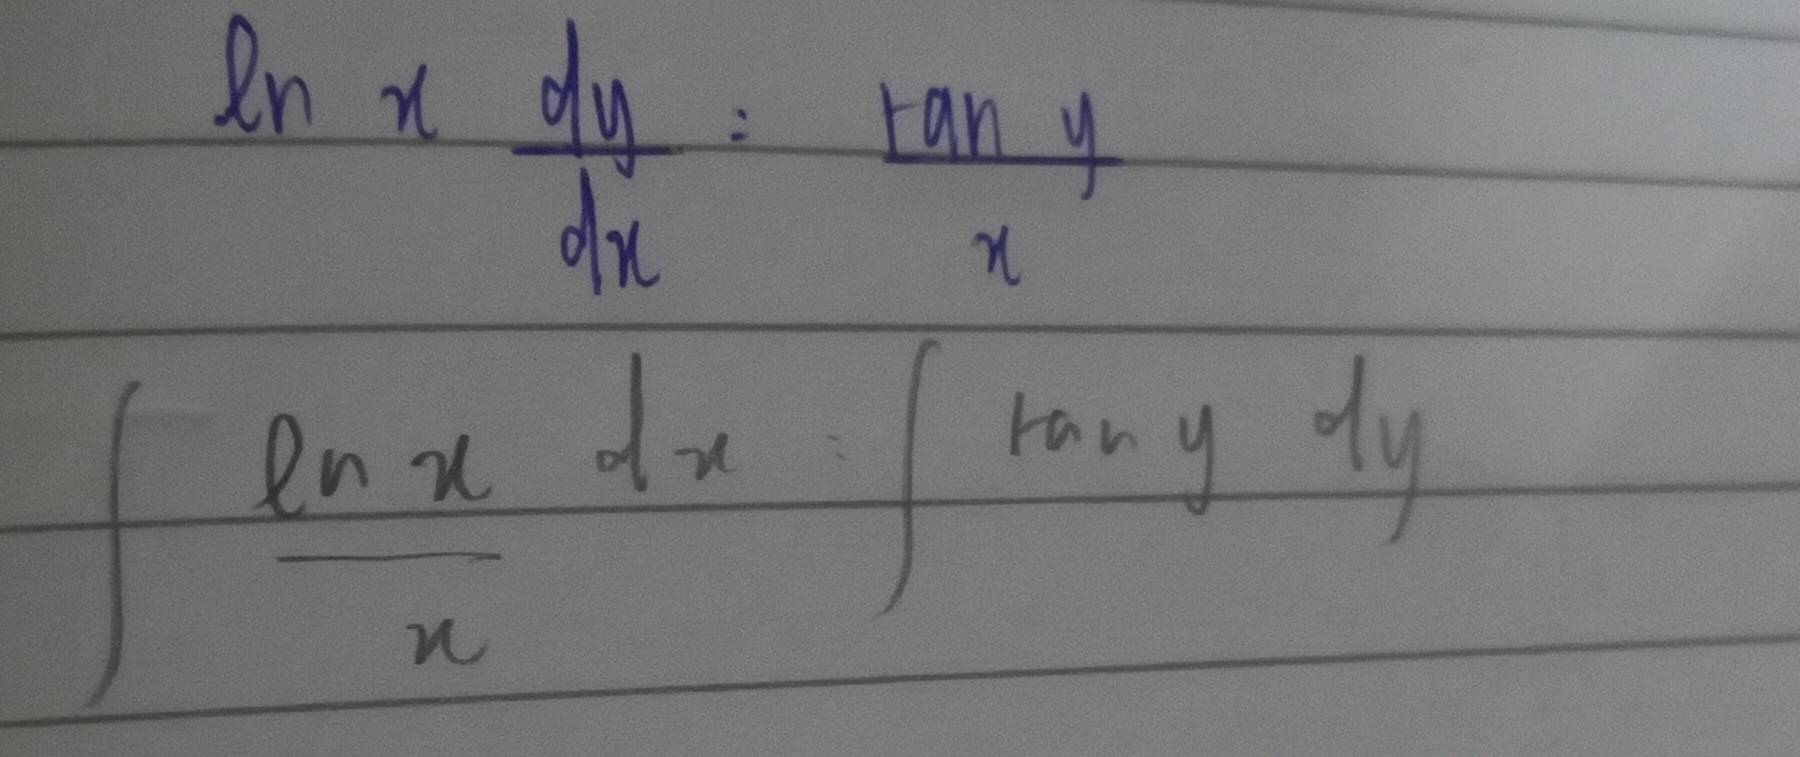 ln x dy/dx = tan y/x
∫ ln x/x dx = ∫ tan y dy